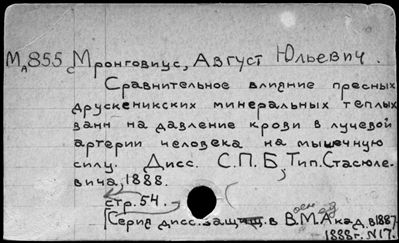 МА855 Мронговиус, Август Юльевич.
Сравнительное влияние пресных
друскеникских минеральных теплых
ванн на давление крови в лучевой
артерии человека на мышечную
силу. Дисс. С.П.Б, Тип. Стасюле-
вича, 1888.
стр. 54.
Серия дисс. защищ. в В.М.Акад. в 1887-
1888 г. N17.